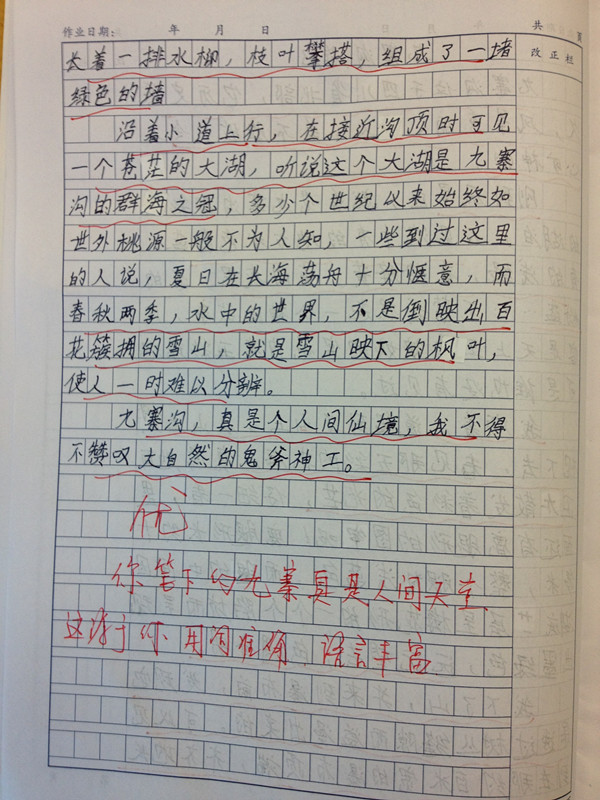 作业日期： 年 月 日 共 页
改正栏
长着一排水柳，枝叶攀搭，组成了一堵
绿色的墙
沿着小道上行，在接近沟顶时可见
一个苍茫的大湖，听说这个大湖是九寨
沟的群海之冠，多少个世纪以来始终如
世外桃源一般不为人知，一些到过这里
的人说，夏日在长海荡舟十分惬意，而
春秋两季，水中的世界，不是倒映出百
花簇拥的雪山，就是雪山映下的枫叶，
使人一时难以分辨。
九寨沟，真是个人间仙境，我不得
不赞叹大自然的鬼斧神工。
优
你笔下的九寨真是人间天堂
这源于你用词准确、语言丰富